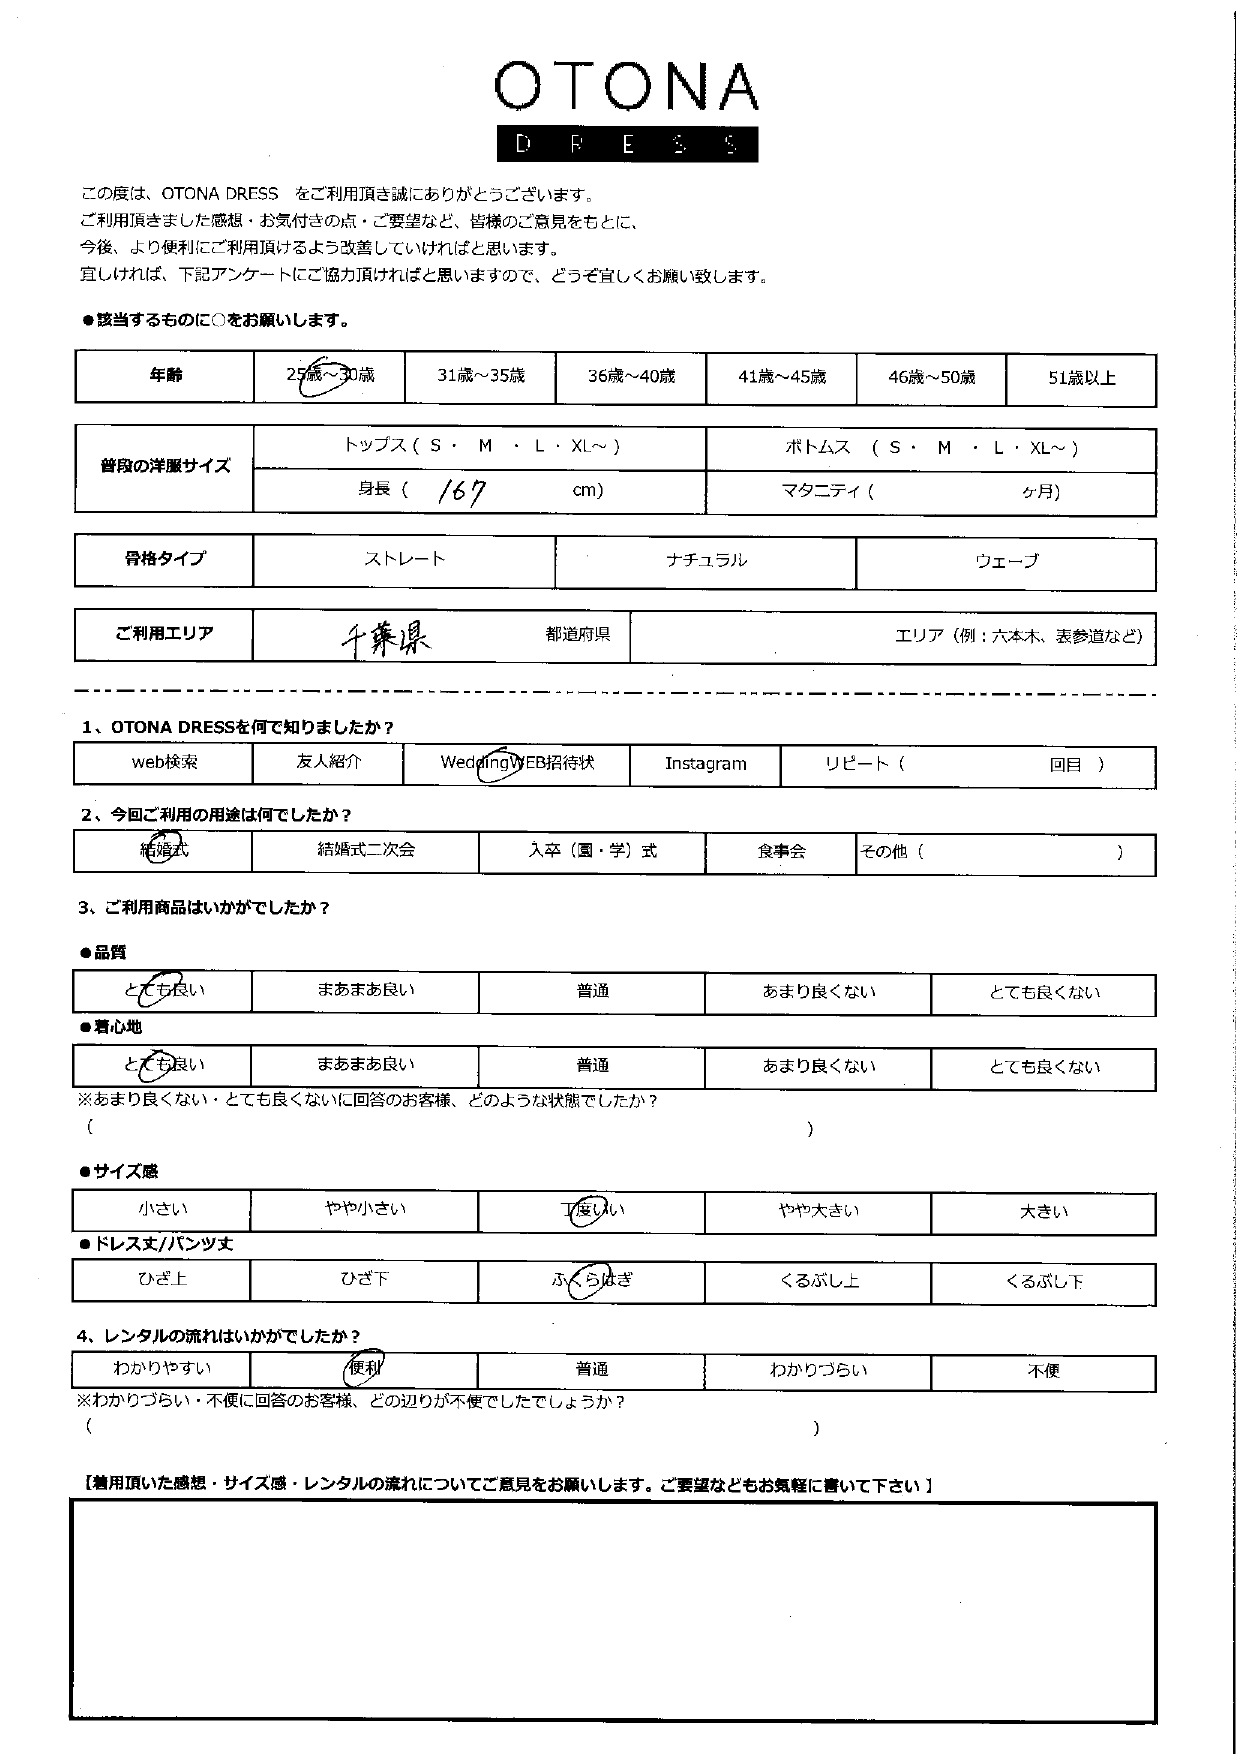 OTONA
DRESS
この度は、OTONA DRESS　をご利用頂き誠にありがとうございます。
ご利用頂きました感想・お気付きの点・ご要望など、皆様のご意見をもとに、
今後、より便利にご利用頂けるよう改善していければと思います。
宜しければ、下記アンケートにご協力頂ければと思いますので、どうぞ宜しくお願い致します。
●該当するものに○をお願いします。
年齢 25歳～30歳 31歳～35歳 36歳～40歳 41歳～45歳 46歳～50歳 51歳以上
普段の洋服サイズ トップス ( S ・ M ・ L ・ XL～ ) ボトムス ( S ・ M ・ L ・ XL～ )
身長 ( 167 cm) マタニティ ( ケ月)
骨格タイプ ストレート ナチュラル ウェーブ
ご利用エリア 千葉県 都道府県 エリア（例：六本木、表参道など）
1、OTONA DRESSを何で知りましたか？
web検索 友人紹介 WeddingWEB招待状 Instagram リピート（ 回目 ）
2、今回ご利用の用途は何でしたか？
結婚式 結婚式二次会 入卒（園・学）式 食事会 その他（ ）
3、ご利用商品はいかがでしたか？
●品質
とても良い まあまあ良い 普通 あまり良くない とても良くない
●着心地
とても良い まあまあ良い 普通 あまり良くない とても良くない
※あまり良くない・とても良くないに回答のお客様、どのような状態でしたか？
（ ）
●サイズ感
小さい やや小さい 丁度いい やや大きい 大きい
●ドレス丈/パンツ丈
ひざ上 ひざ下 ふくらはぎ くるぶし上 くるぶし下
4、レンタルの流れはいかがでしたか？
わかりやすい 便利 普通 わかりづらい 不便
※わかりづらい・不便に回答のお客様、どの辺りが不便でしたでしょうか？
（ ）
【着用頂いた感想・サイズ感・レンタルの流れについてご意見をお願いします。ご要望などもお気軽に書いて下さい 】